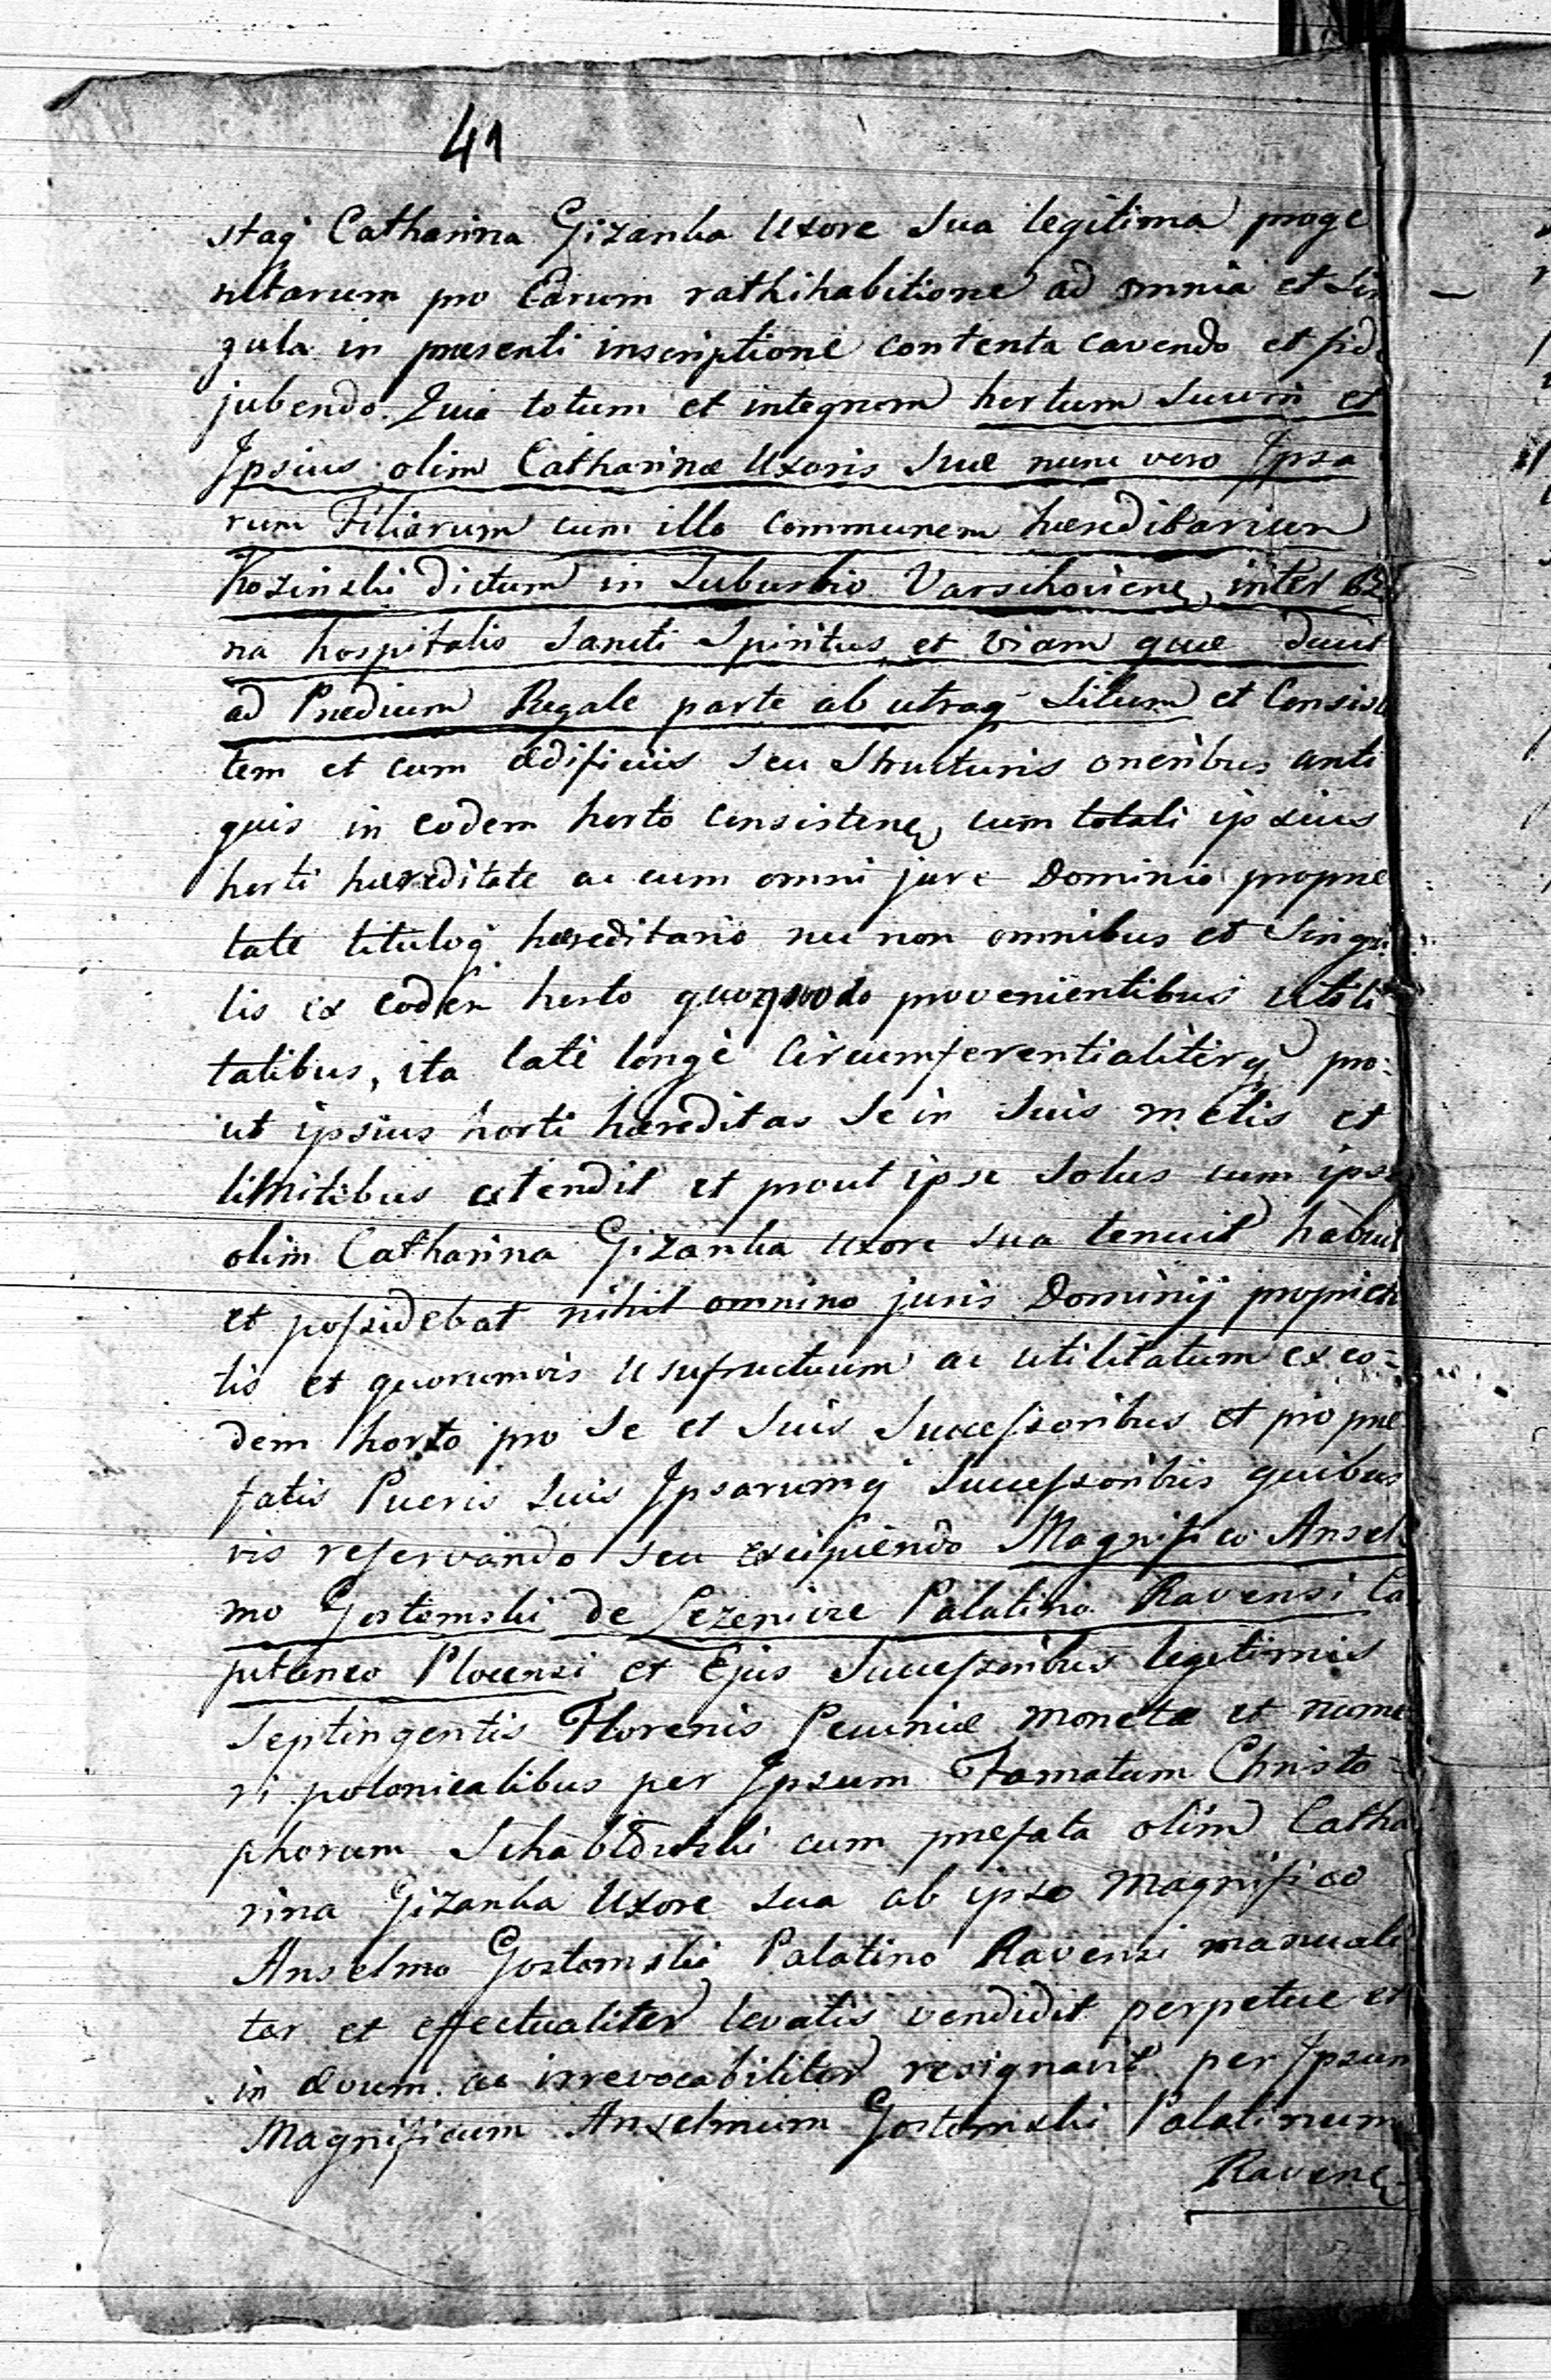 41
staq Catharina Gizanka Uxore sua legitima proge
nitarum pro Earum rathihabitione ad omnia et sin
gula in præsenti inscriptione contenta cavendo et fide
jubendo. Quia totum et integrum hortum suum et
Ipsius olim Catharinæ Uxoris suæ nunc vero Ipsa
rum Filiarum cum illo communem hæreditarium
Kozinski dictum in Suburbio Varschoviene, inter
na hospitalis Sancti Spiritus et viam quæ ducit
ad Prædium Regale parte ab utraq situm et Consis
tem et cum ædificiis seu structuris oneribus anti
quis in eodem horto consistene, cum totali ipsius
horti hæreditate ac cum omni jure Dominio proprie
tate tituloq hæreditario nec non omnibus et singu
lis ex eodem horto quoquodo provenientibus utili
tatibus, ita late longè circumferentialiterq pro-
ut ipsius horti hæreditas se in suis metis et
limitibus extendit et prout ipse solus cum ipsa
olim Catharina Gizanka uxore sua tenuit habuit
et possidebat nihil omnino juris Dominij proprieta
tis et quorumvis usufructuum ac utilitatum ex eo-
dem horto pro se et suis successoribus et pro præ
fatis Pueris suis Ipsarumq successoribus quibus
vis reservando seu excipiendo Magnifico Ansel
mo Gostomski de Lezenice Palatino Ravensi Ca
pitaneo Plocensi et Ejus Successoribus legitimis
Septingentis Florenis Pecuniæ monetæ et nume
ri polonicalibus per Ipsum Famatum Christo-
phorum cum præfata olim Catha
rina Gizanka Uxore sua ab ipso Magnifico
Anselmo Gostomski Palatino Ravensi manuali
ter et effectualiter levatis vendidit perpetue et
in ævum ac irrevocabiliter resignavit per Ipsum
Magnificum Anselmum Gostomski Palatinum
Ravene